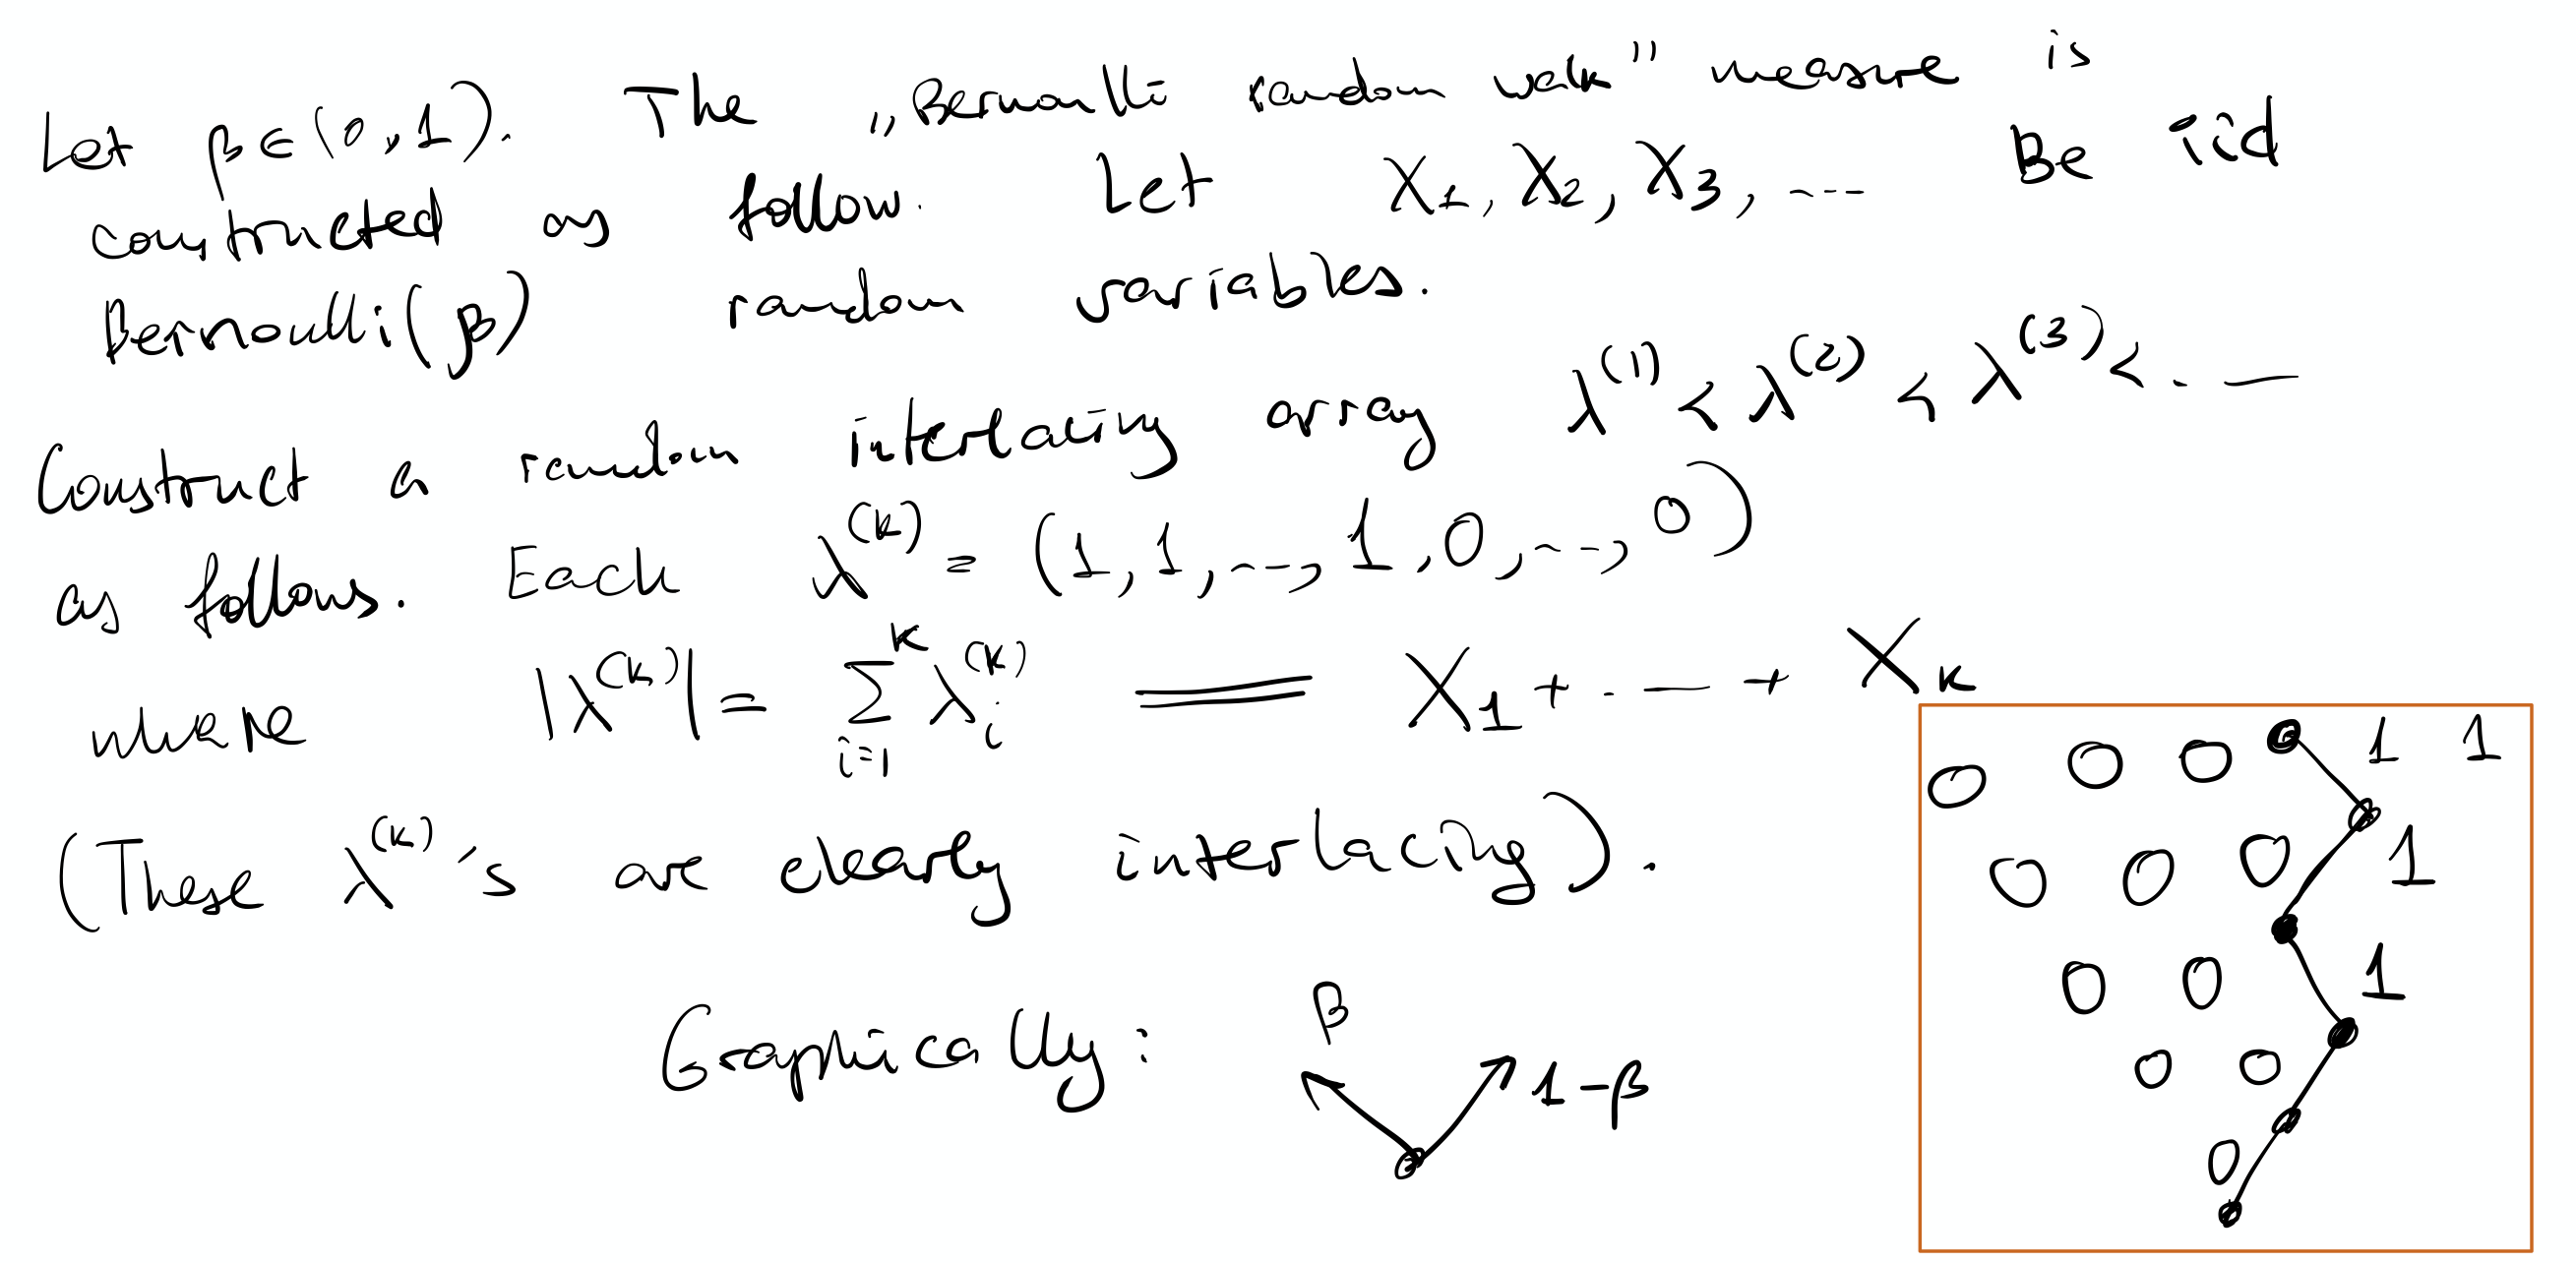 Let β ∈ (0,1). The „Bernoulli random walk" measure is
constructed as follow. Let X₁, X₂, X₃, ... Be iid
Bernoulli(β) random variables.
Construct a random interlacing array λ⁽¹⁾ < λ⁽²⁾ < λ⁽³⁾ < . —
as follows. Each λ⁽ᵏ⁾ = (1, 1, ..., 1, 0, ..., 0)
where |λ⁽ᵏ⁾| = ∑_{i=1}^{k} λ_i⁽ᵏ⁾ = X₁ + . — + X_k
(These λ⁽ᵏ⁾'s are clearly interlacing).
Graphically: β 1-β
0 0 0 1 1
0 0 0 1
0 0 1
0 0
0